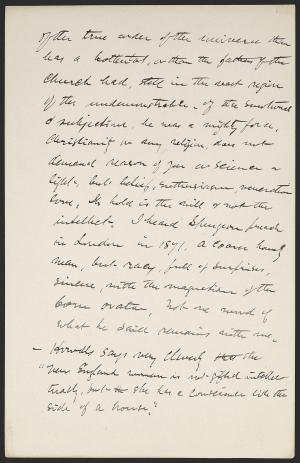 of the true order of the universe than
has a hottentot, or than the fathers of the
Church had, still in the vast region
of the undemonstrable - of the emotional
& subjective, he was a mighty force.
Christianity or any religion, does not
demand reason of you or science &
light, but belief, enthusiasm, veneration
love, Its hold is the will & not the
intellect. I heard Spurgeon preach
in London in 1871, a coarse homely
man, but racy, full of surprises,
sincere, with the magnetism of the
born orator. Not one word of
what he said remains with me.
- Howells says very cleverly the
"New England woman is not gifted intellec-
tually, but she has a conscience like the
side of a house."